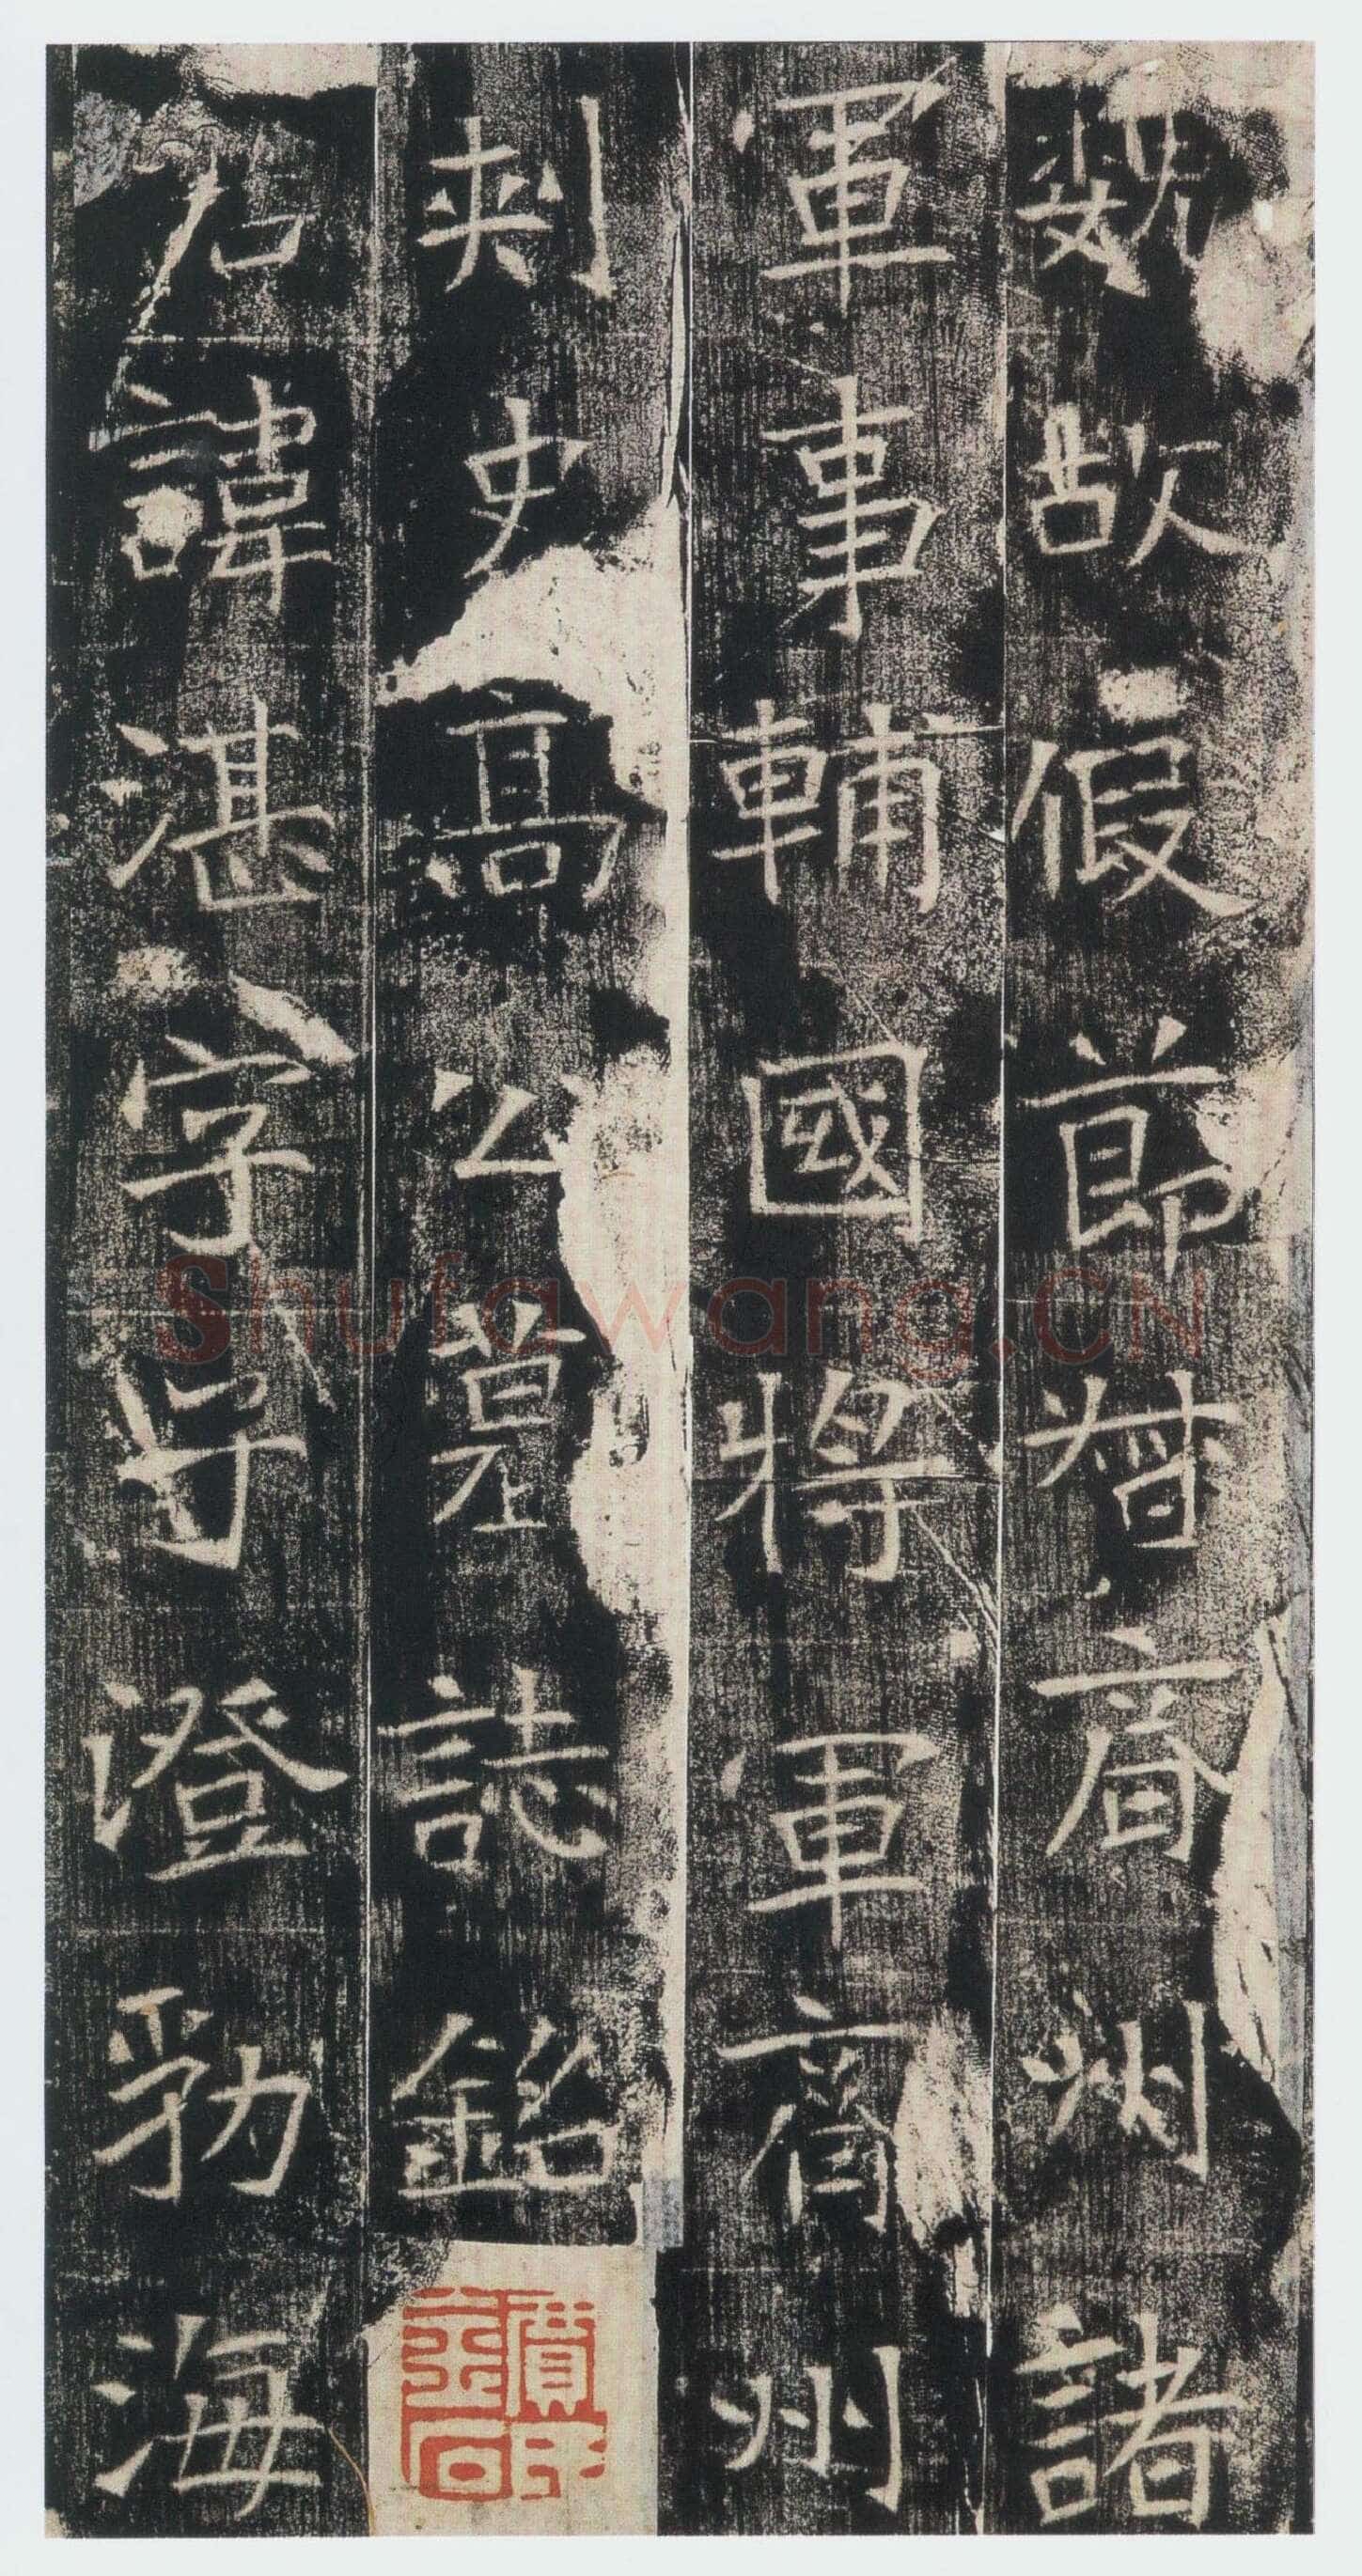 魏故假節督齊州諸
軍事輔國將軍齊州
刺史高公墓誌銘
君諱湛字子澄勃海
Shufawang.CN